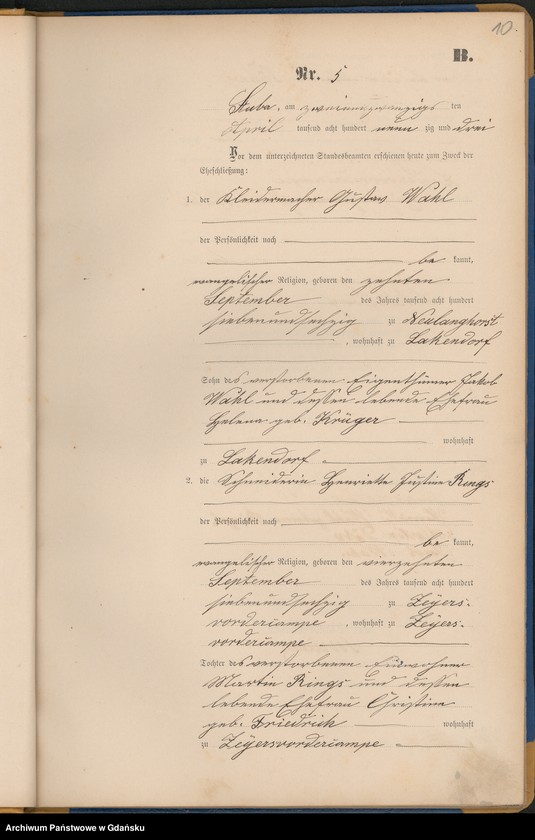 10.
B.
Nr. 5
Stuba, am zweiundzwanzigs ten
April tausend acht hundert neun zig und drei
Vor dem unterzeichneten Standesbeamten erschienen heute zum Zweck der
Eheschließung:
1. der Kleidermacher Gustav Wahl
der Persönlichkeit nach
be kannt,
evangelischer Religion, geboren den zehnten
September des Jahres tausend acht hundert
siebenundsechzig zu Neulanghorst
, wohnhaft zu Lakendorf
Sohn des verstorbenen Eigenthümer Jakob
Wahl und dessen lebende Ehefrau
Helena geb. Krüger
wohnhaft
zu Lakendorf
2. die Schneiderin Henriette Justine Rings
der Persönlichkeit nach
be kannt,
evangelischer Religion, geboren den vierzehnten
September des Jahres tausend acht hundert
siebenundsechzig zu Zeyers-
vordercampe, wohnhaft zu Zeyers-
vordercampe
Tochter des verstorbenen Einwohner
Martin Rings und dessen
lebende Ehefrau Christine
geb. Friedrich wohnhaft
zu Zeyersvordercampe
Archiwum Państwowe w Gdańsku